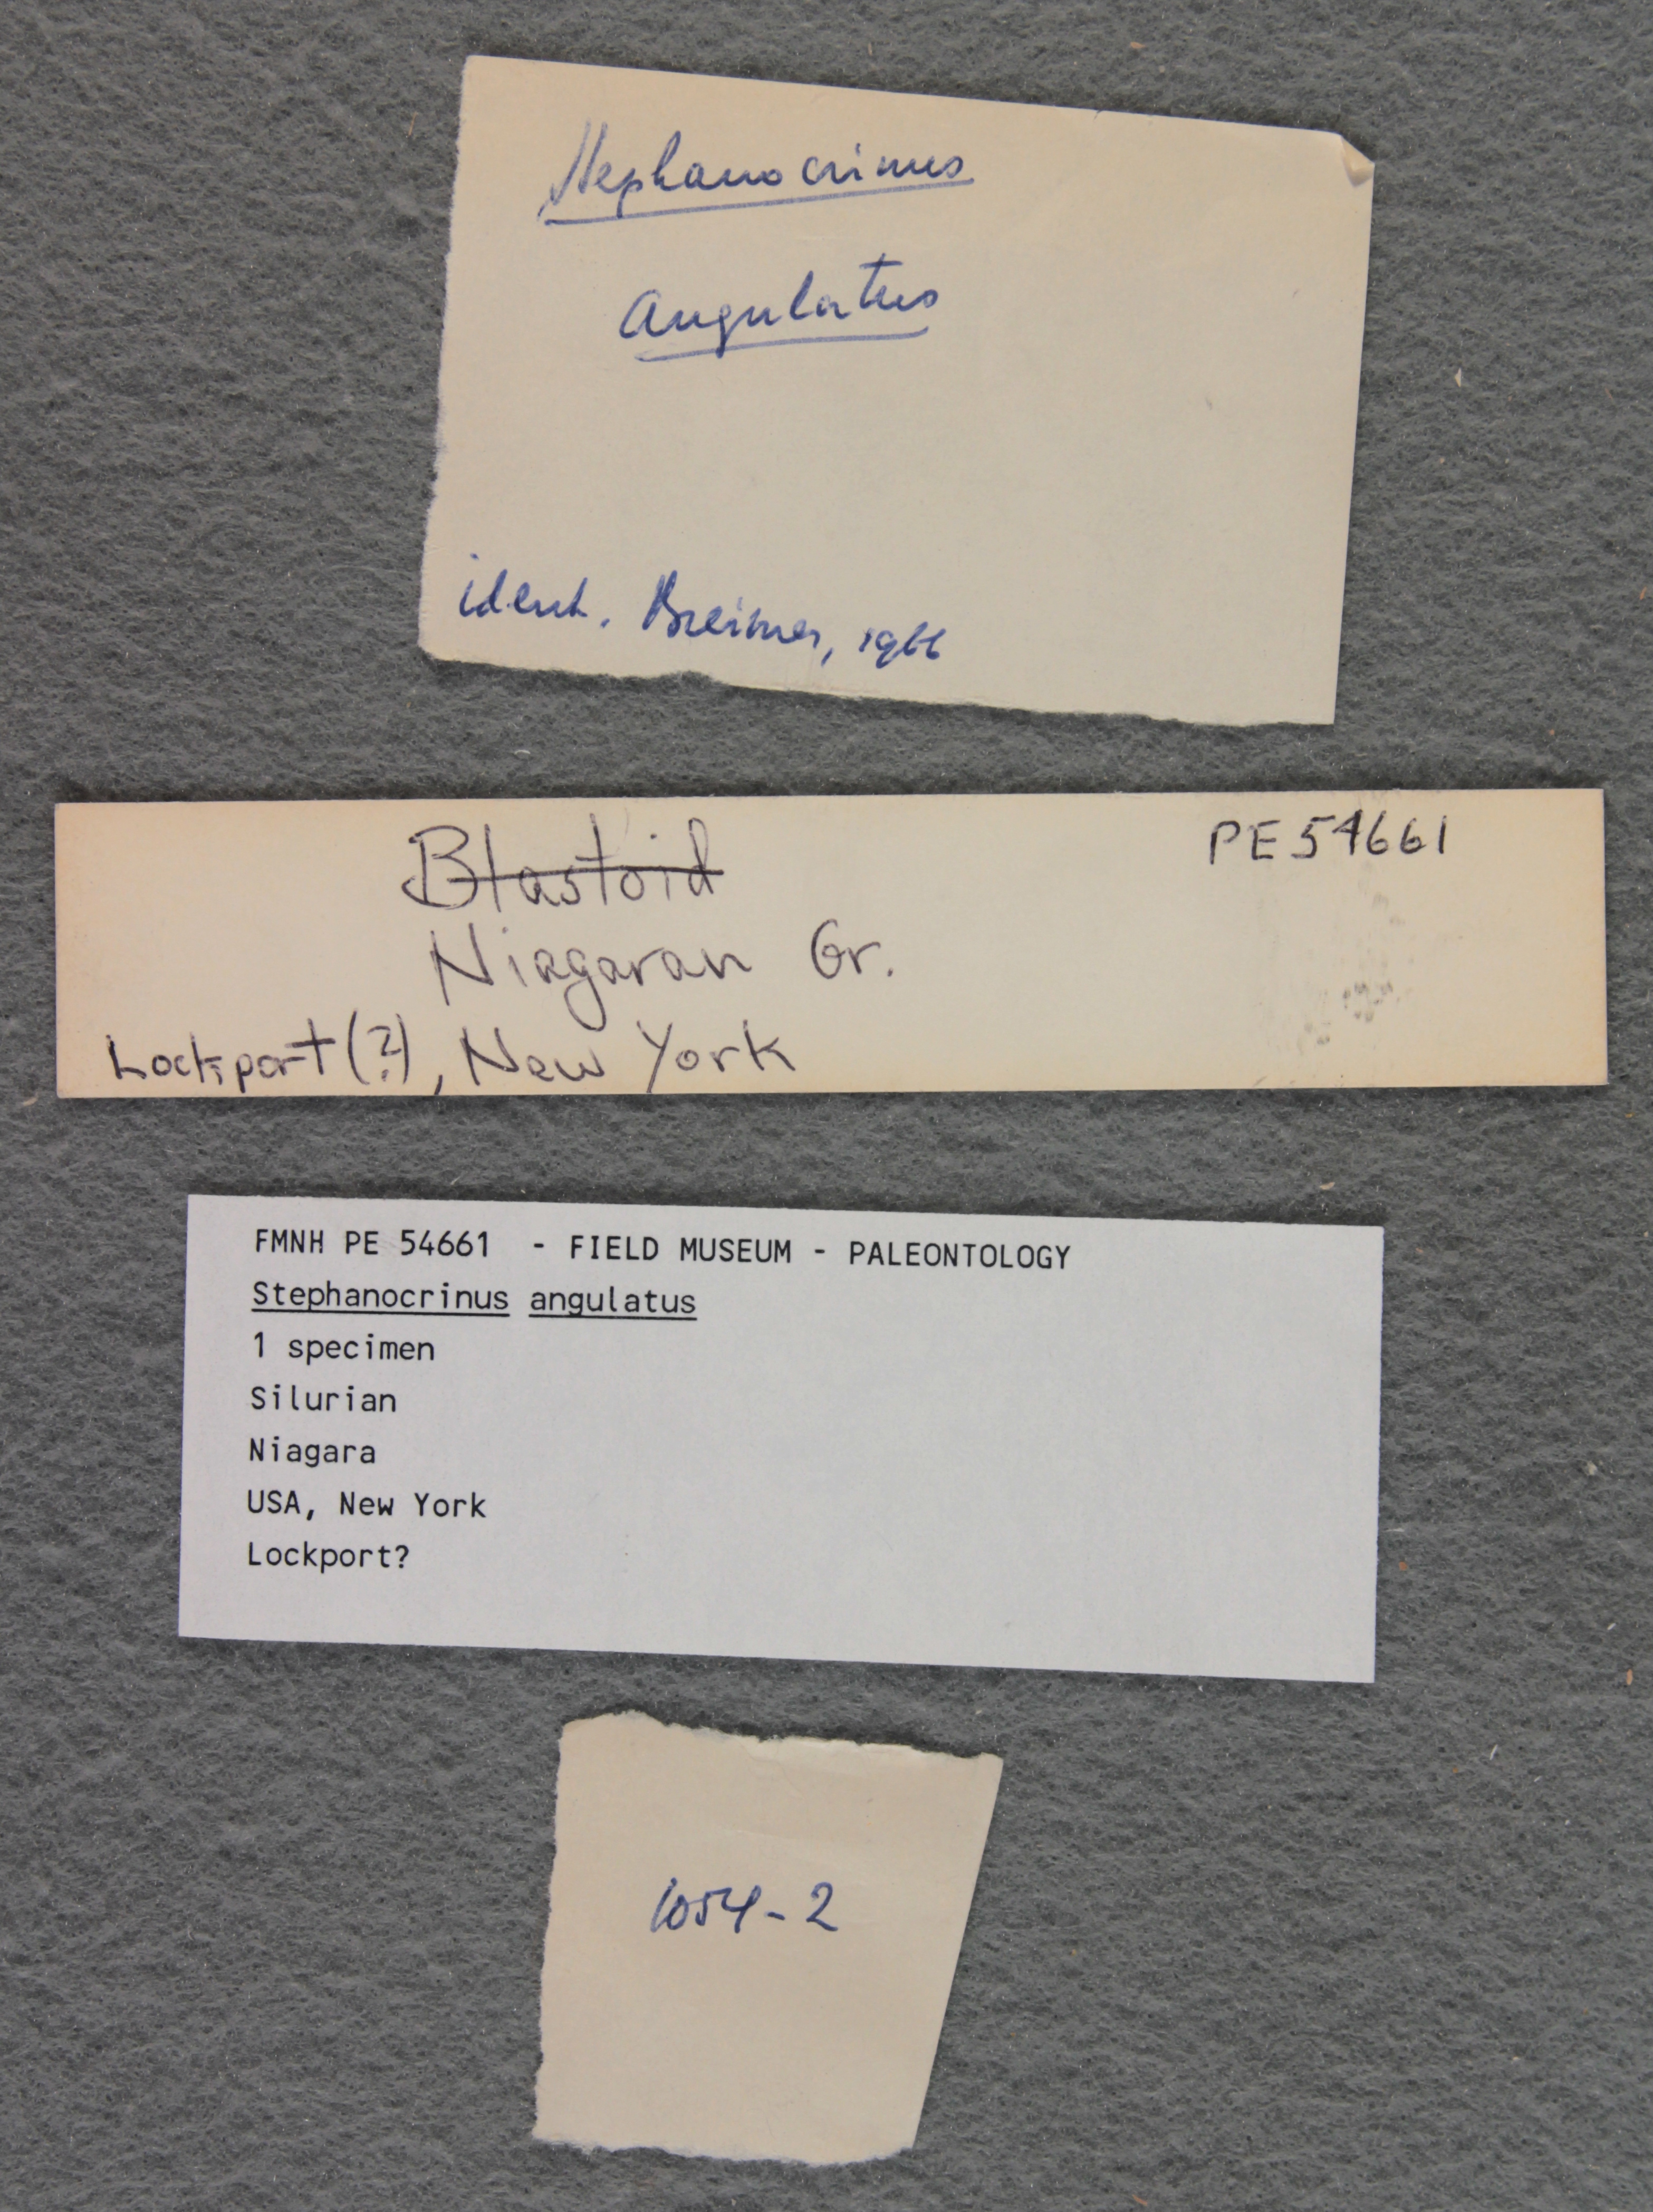 Stephanocrinus
angulatus
ident. Breimer, 1966
Blastoid
PE 54661
Niagaran Gr.
Lockport(?), New York
FMNH PE 54661 - FIELD MUSEUM - PALEONTOLOGY
Stephanocrinus angulatus
1 specimen
Silurian
Niagara
USA, New York
Lockport?
1054-2